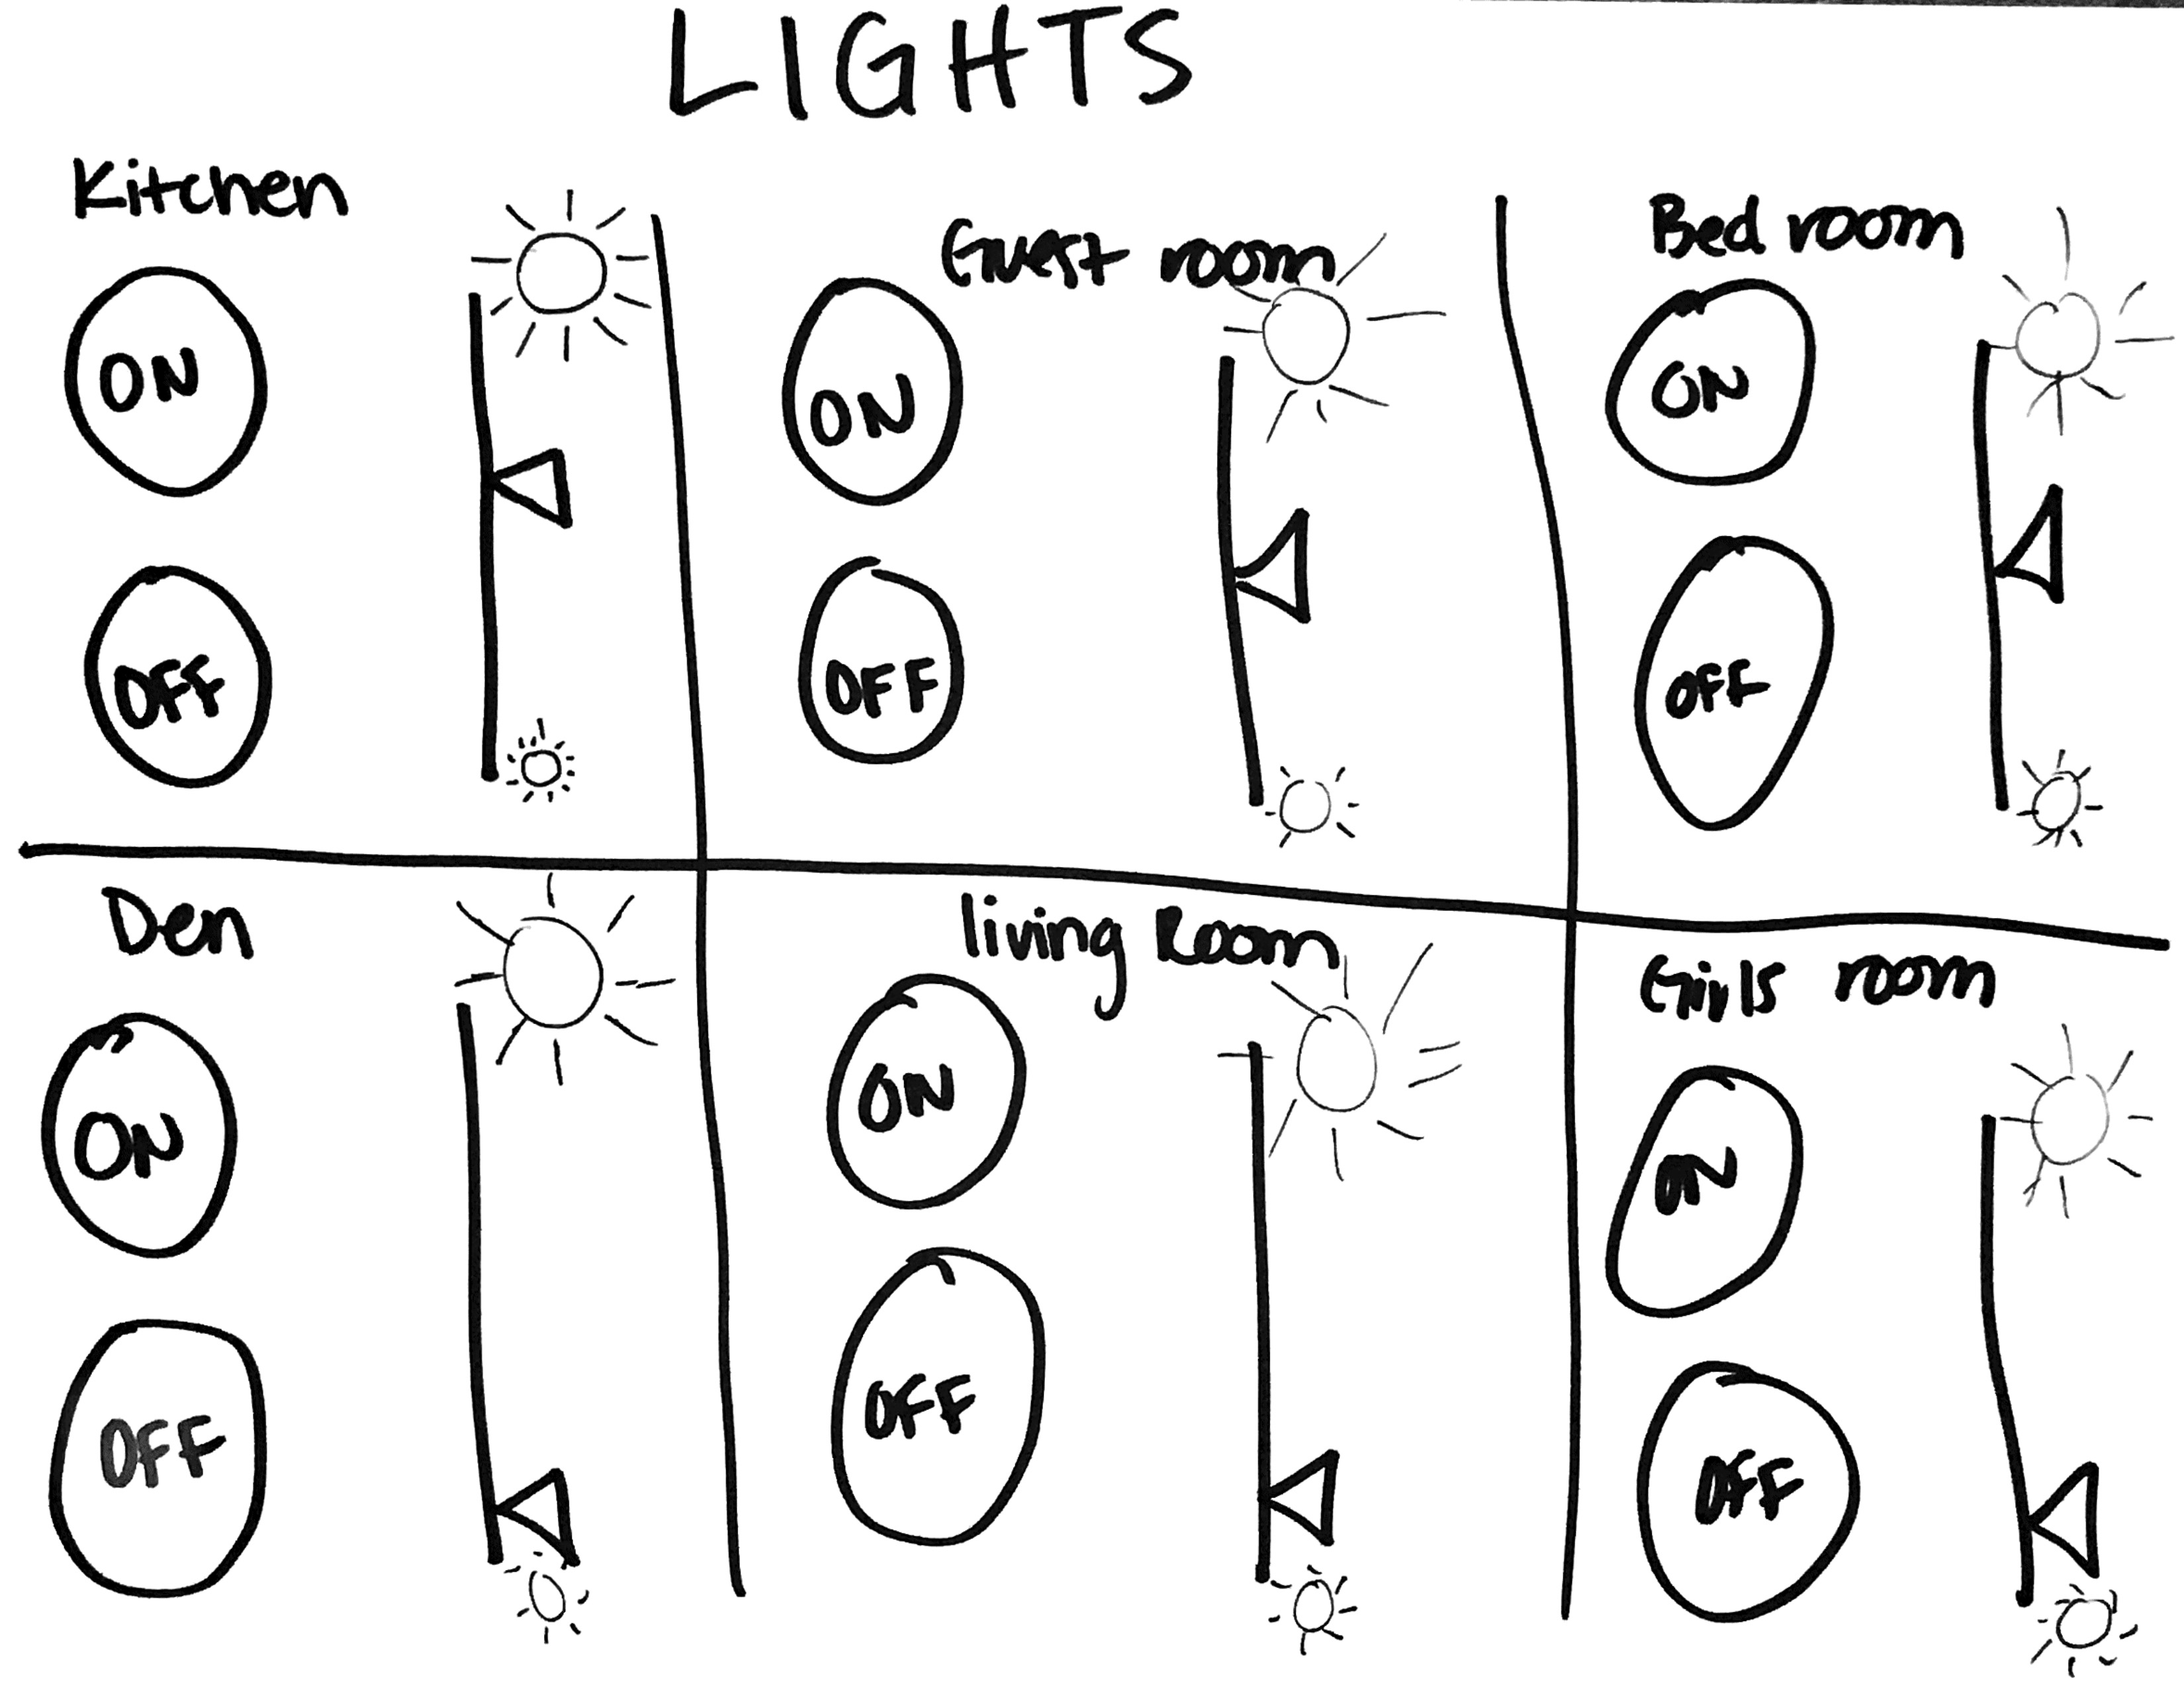 LIGHTS
Kitchen
ON
OFF
Guest room
ON
OFF
Bed room
ON
OFF
Den
ON
OFF
living Room
ON
OFF
Girls room
ON
OFF